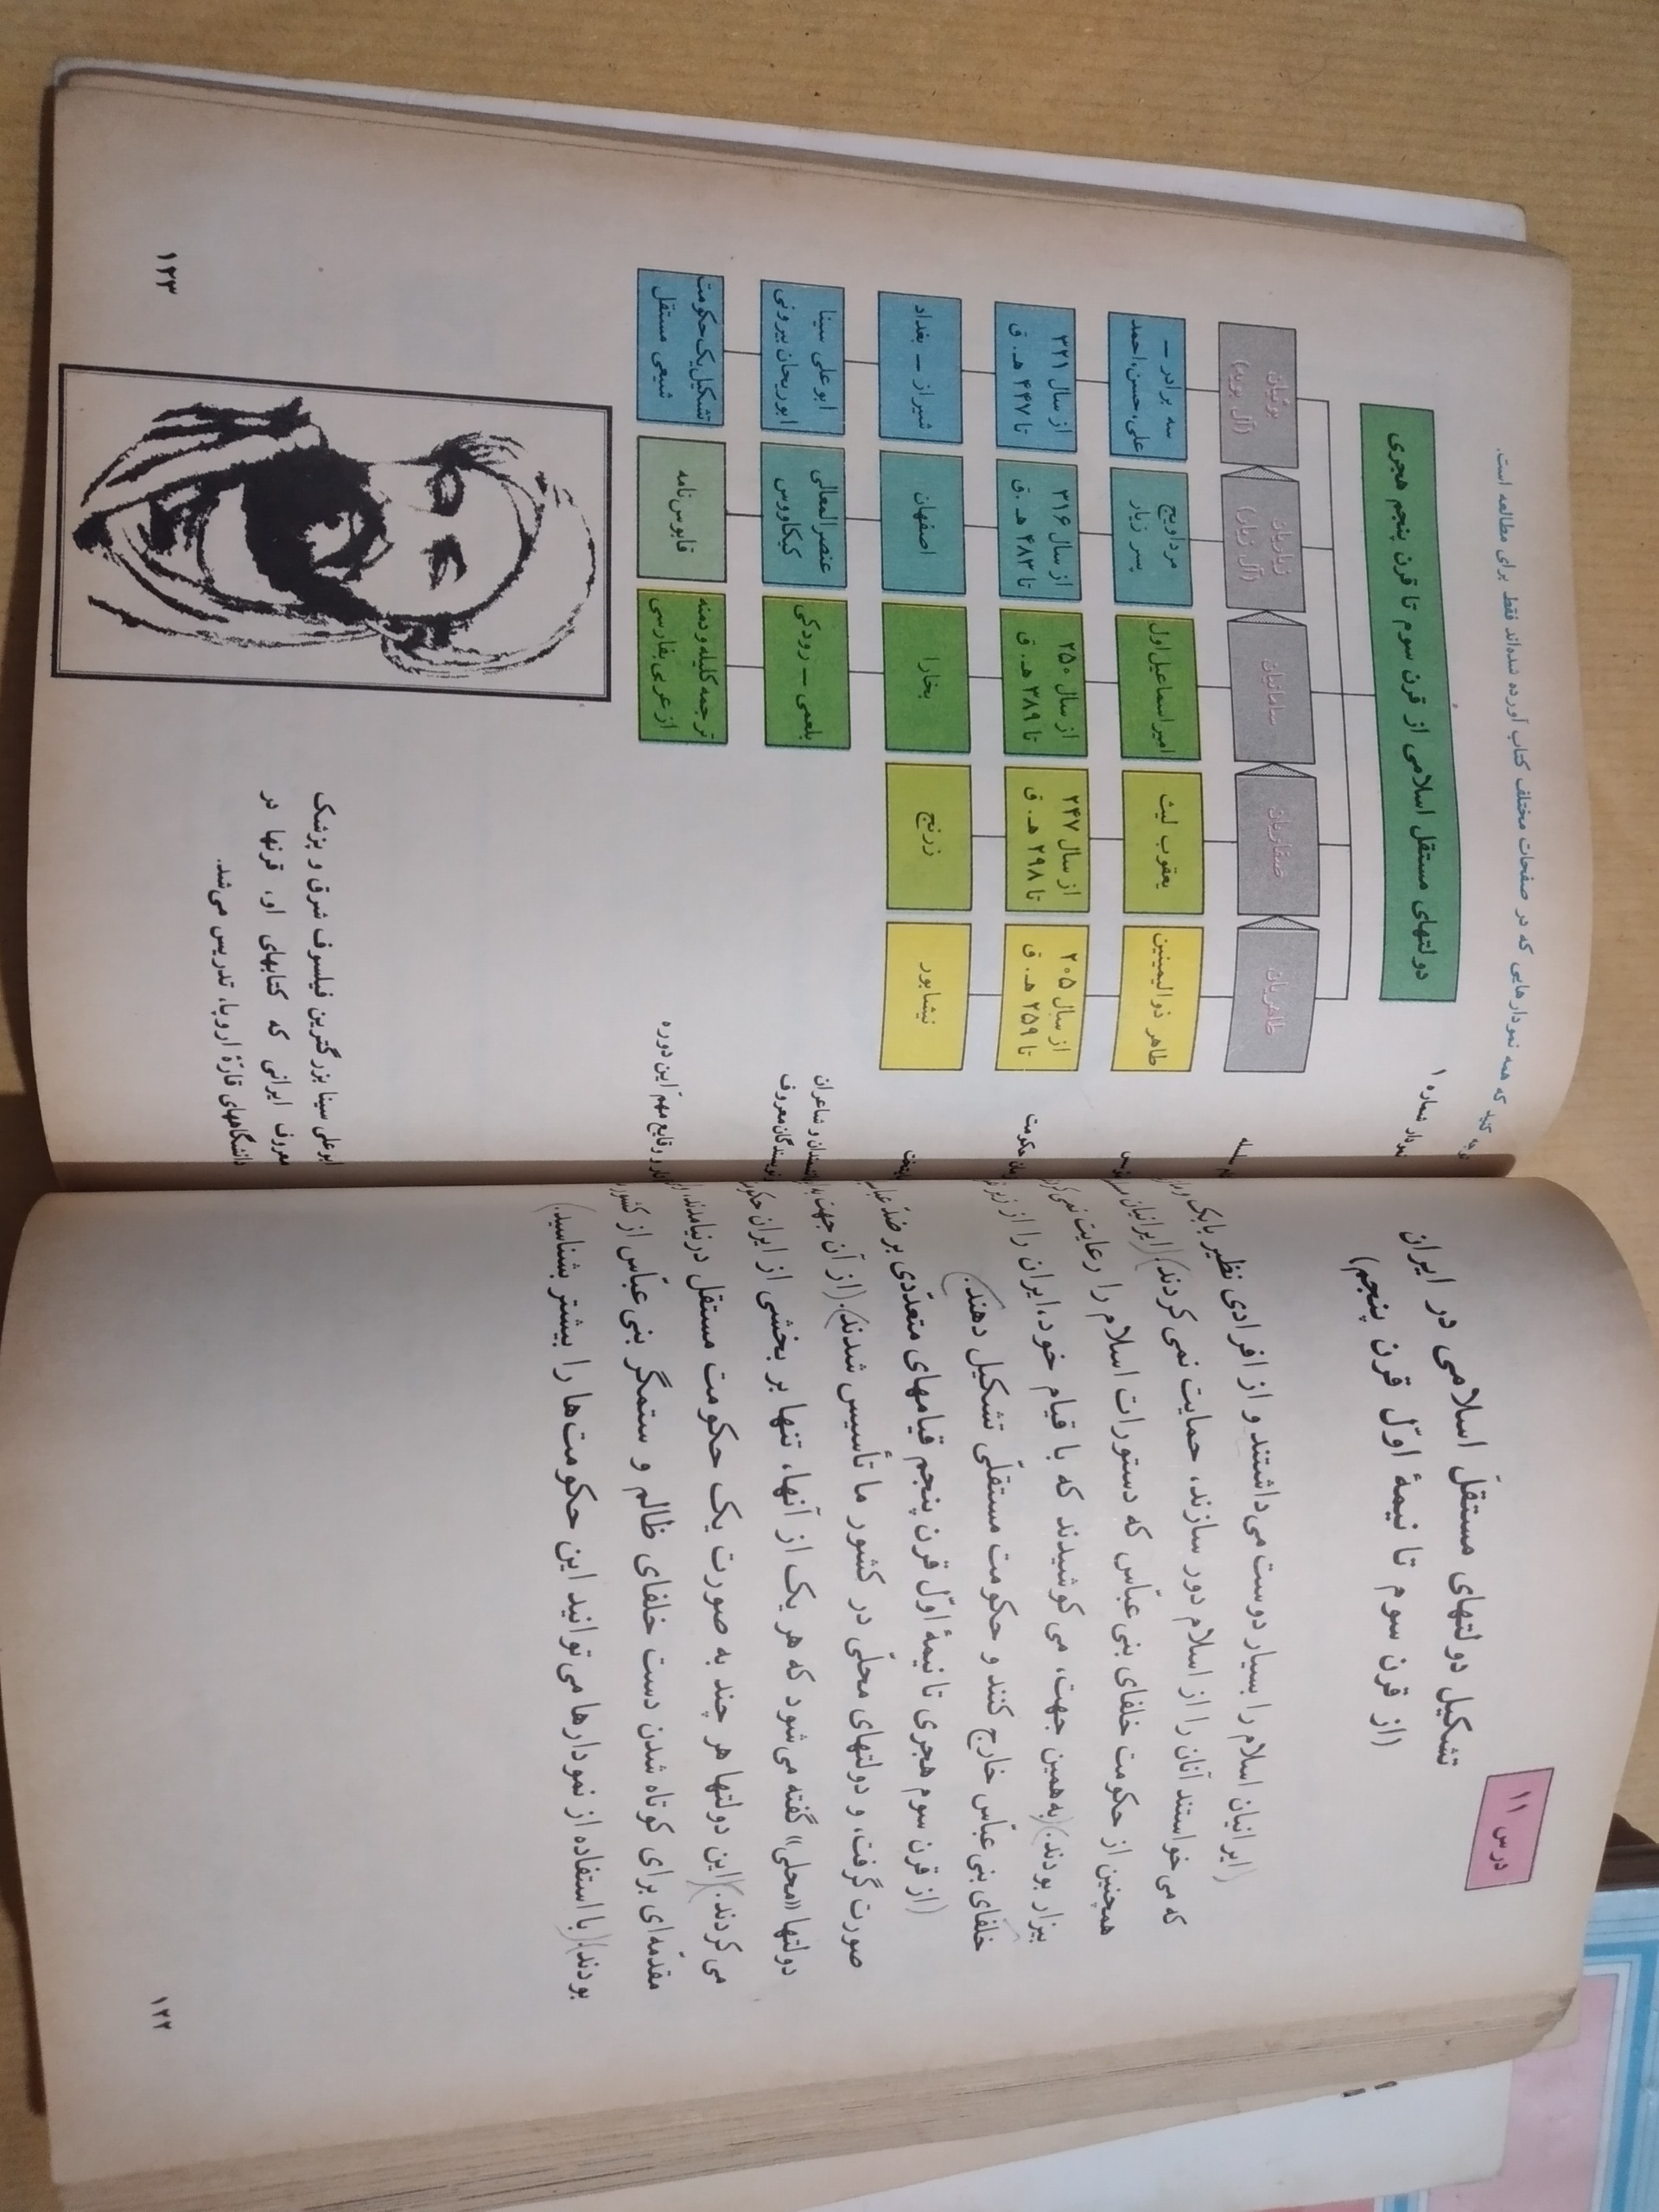 درس ۱۱
تشکیل دولتهای مستقلّ اسلامی در ایران
(از قرن سوم تا نیمهٔ اوّل قرن پنجم)
(ایرانیان اسلام را بسیار دوست می‌داشتند و از افرادی نظیر بابک
که می‌خواستند آنان را از اسلام دور سازند، حمایت نمی‌کردند.) (ایرانیان
همچنین از حکومت خلفای بنی عبّاس که دستورات اسلام را رعایت نمی‌کر
بیزار بودند.) (به همین جهت، می‌کوشیدند که با قیام خود، ایران را از زیر
خلفای بنی عبّاس خارج کنند و حکومت مستقلّی تشکیل دهند.)
(از قرن سوم هجری تا نیمهٔ اوّل قرن پنجم قیامهای متعدّدی بر ضدّ
صورت گرفت، و دولتهای محلّی در کشور ما تأسیس شدند.) (از آن جهت به
دولتها «محلی» گفته می‌شود که هر یک از آنها، تنها بر بخشی از ایران حکو
می‌کردند.) (این دولتها هر چند به صورت یک حکومت مستقل در نیامدند،
مقدّمه‌ای برای کوتاه شدن دست خلفای ظالم و ستمگر بنی عبّاس از کشور
بودند.) (با استفاده از نمودارها می‌توانید این حکومت‌ها را بیشتر بشناسید.)
۱۲۲
توجه کنید که همه نمودارهایی که در صفحات مختلف کتاب آورده شده‌اند فقط برای مطالعه است.
نمودار شماره ۱
دولتهای مستقل اسلامی از قرن سوم تا قرن پنجم هجری
طاهریان
صفاریان
سامانیان
زیاریان
(آل زیار)
بوئیان
(آل بویه)
طاهر ذوالیمینین
یعقوب لیث
امیر اسماعیل اول
مرداویج
پسر زیار
سه برادر –
علی، حسن، احمد
حکومت
از سال ۲۰۵
تا ۲۵۹ هـ . ق
از سال ۲۴۷
تا ۲۹۸ هـ . ق
از سال ۲۵۰
تا ۳۸۹ هـ . ق
از سال ۳۱۶
تا ۴۸۳ هـ . ق
از سال ۳۲۱
تا ۴۴۷ هـ . ق
نیشابور
زرنج
بخارا
اصفهان
شیراز – بغداد
و شاعران
معروف
بلعمی – رودکی
عنصرالمعالی
کیکاووس
ابوعلی سینا
ابوریحان بیرونی
و وقایع مهمّ این دوره
ترجمه کلیله و دمنه
از عربی بفارسی
قابوس‌نامه
تشکیل یک حکومت
شیعی مستقل
ابوعلی سینا بزرگترین فیلسوف شرق و پزشک
معروف ایرانی که کتابهای او، قرنها در
دانشگاههای قارّهٔ اروپا، تدریس می‌شد.
۱۲۳